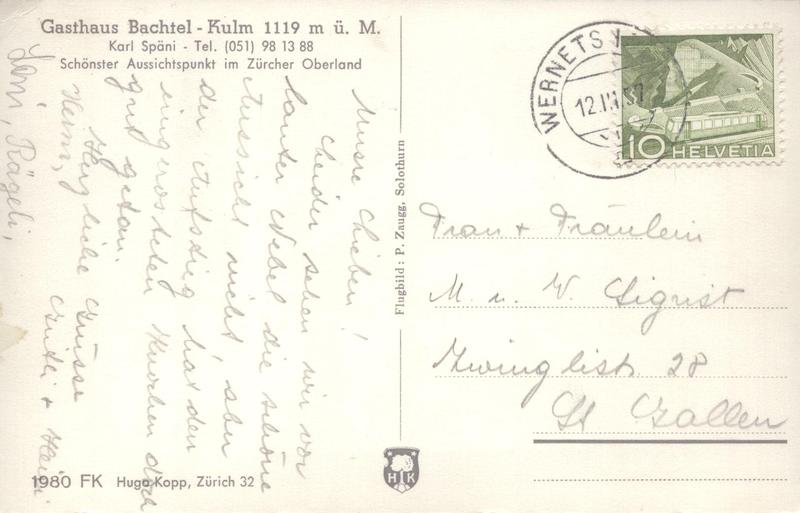 Gasthaus Bachtel - Kulm 1119 m ü. M.
Karl Späni - Tel. (051) 98 13 88
Schönster Aussichtspunkt im Zürcher Oberland
Meine Lieben!
Leider sehen wir vor
lauter Nebel die schöne
Aussicht nicht, aber
der Aufstieg hat den
eingerosteten Knochen doch
gut getan.
Herzliche Grüsse
+ Heini
Heini,
Rägeli,
1980 FK Hugo Kopp, Zürich 32
Flugbild: P. Zaugg, Solothurn
HK
WERNETS
12.III.52
10 HELVETIA
Frau + Fräulein
M. u. W. Sigrist
Zwinglist. 28
St Gallen